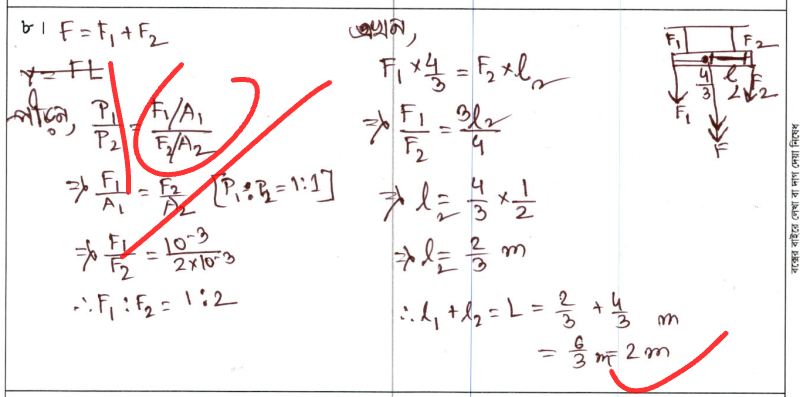 ৮। F = F₁ + F₂
γ = FL
পীড়ন, P₁/P₂ = (F₁/A₁)/(F₂/A₂)
⇒ F₁/A₁ = F₂/A₂ [P₁:P₂ = 1:1]
⇒ F₁/F₂ = 10⁻³/2×10⁻³
∴ F₁ : F₂ = 1 : 2
এখন,
F₁ × 4/3 = F₂ × l₂
⇒ F₁/F₂ = 3l₂/4
⇒ l₂ = 4/3 × 1/2
⇒ l₂ = 2/3 m
∴ l₁ + l₂ = L = 2/3 + 4/3 m
= 6/3 m = 2 m
F₁ F₂
4/3 l₂
F₁ F₂
F
বক্সের বাইরে লেখা বা দাগ দেয়া নিষেধ